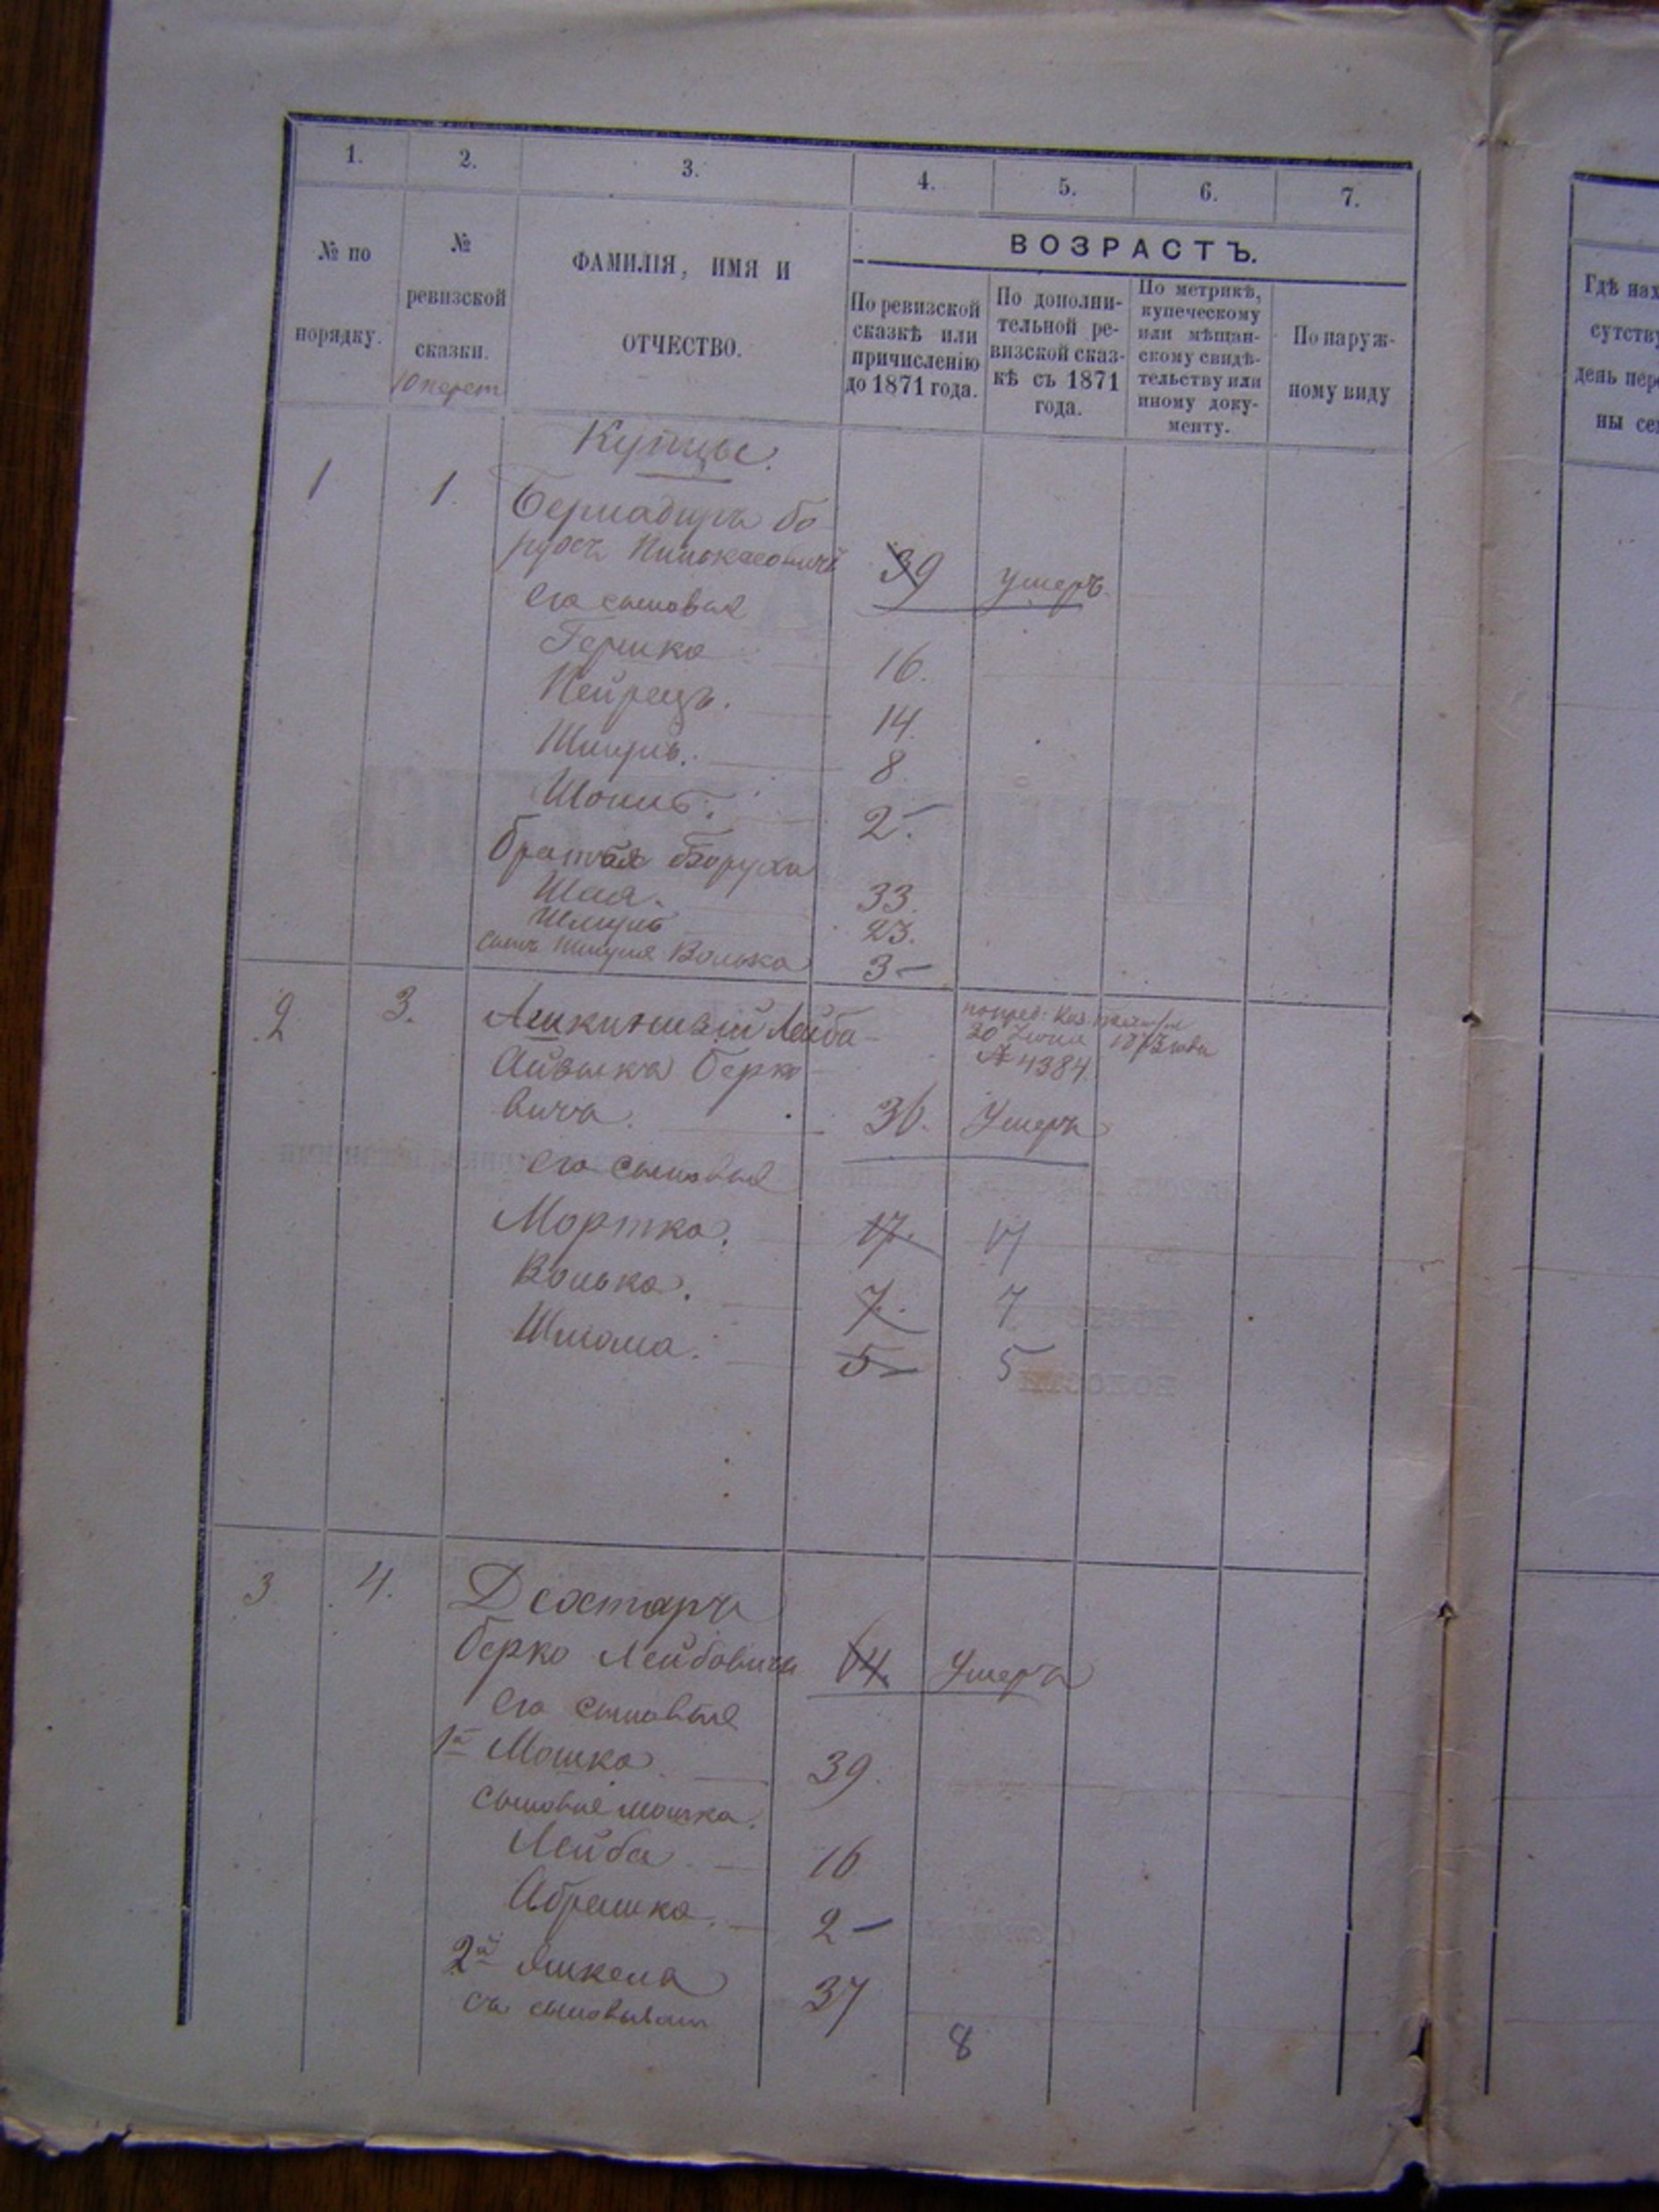 1.
2.
3.
4.
5.
6.
7.
№ по
порядку.
№
ревизской
сказки.
10 перет
ФАМИЛІЯ, ИМЯ И
ОТЧЕСТВО.
ВОЗРАСТЪ.
По ревизской
сказкѣ или
причисленію
до 1871 года.
По дополни-
тельной ре-
визской сказ-
кѣ съ 1871
года.
По метрикѣ,
купеческому
или мѣщан-
скому свидѣ-
тельству или
иному доку-
менту.
По наруж-
ному виду
Купцы.
1 1.
Бо
рухъ Пинькасовичъ 39 умеръ
Его сыновья
Гершко 16.
14.
Шмуль. 8.
2.
Братья Боруха
Шая. 33.
Шмуль 23.
сынъ Шмуля Волько 3
2 3. Лейба
Айзыкъ Берко
вичъ. 36. Умеръ
20 Іюня
№ 4384
Его сыновья
Мортко. 17. 17
Волько. 7. 7
Шлиома. 5 5
3 4. Дехтяръ
Берко Лейбовичъ 64. Умеръ
Его сыновья
1й Мошко 39.
сыновья Мошка.
Лейба 16
Абрашко. 2
2й 37
8
Гдѣ нах
сутству
день пере
ны се